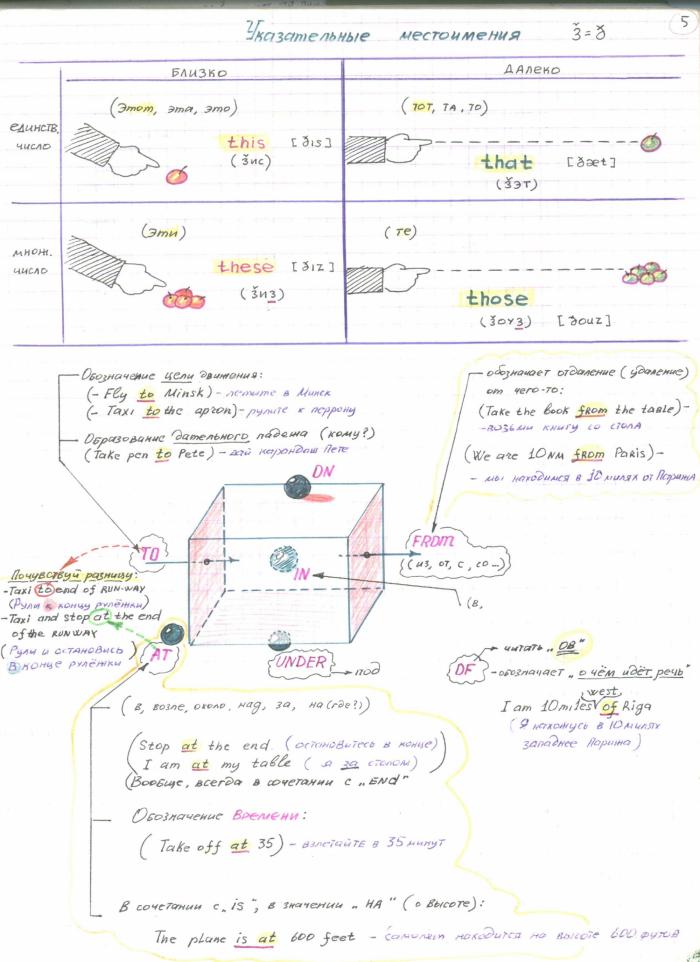 5
Указательные местоимения ž = ð
БЛИЗКО ДАЛЕКО
ЕДИНСТВ. ЧИСЛО
(Этот, эта, это)
this [ðıs]
(žис)
(ТОТ, ТА, ТО)
that [ðæt]
(žЭТ)
МНОЖ. ЧИСЛО
(Эти)
these [ðız]
(žИЗ)
(те)
those
(žоуз) [ðouz]
Обозначение цели движения:
(- Fly to Minsk) - летите в Минск
(- Taxi to the apron) - рулите к перрону
Образование дательного падежа (кому?)
(Take pen to Pete) - дай карандаш Пете
обозначает отдаление (удаление)
от чего-то:
(Take the book from the table) -
- возьми книгу со стола
(We are 10 NM from Paris) -
- мы находимся в 10 милях от Парижа
ON
TO
IN
FROM
(из, от, с, со...)
(в,
Почувствуй разницу:
- Taxi to end of RUN-WAY
(Рули к концу рулёжки)
- Taxi and stop at the end
of the RUNWAY
(Рули и остановись
в конце рулёжки)
AT
UNDER под
OF
читать „ОВ"
- обозначает „о чём идёт речь"
west
I am 10 miles of Riga
(Я нахожусь в 10 милях
западнее Парижа)
(в, возле, около, над, за, на (где?))
(Stop at the end. (остановитесь в конце)
I am at my table (я за столом)
(Вообще, всегда в сочетании с „END"
Обозначение Времени:
(Take off at 35) - взлетайте в 35 минут
В сочетании с „is", в значении „НА" (о высоте):
The plane is at 600 feet - самолет находится на высоте 600 футов